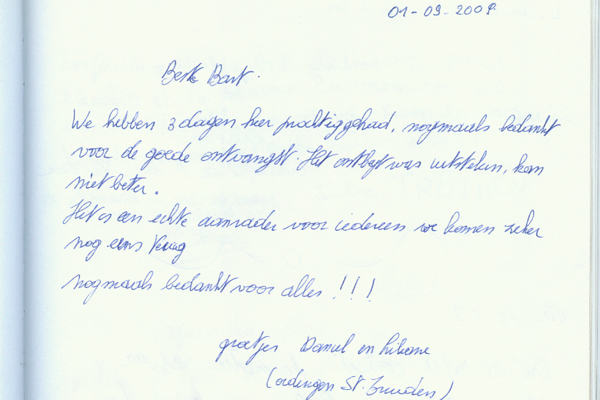 01-09-2008
Beste Bart.
We hebben 3 dagen hier prachtig gehad, nogmaals bedankt
voor de goede ontvangst. Het ontbyt was uitstekend, kon
niet beter.
Het is een echte aanrader voor iedereen we komen zeker
nog eens terug
nogmaals bedankt voor alles !!!
groetjes Daniel en Liliane
(ordingen St. Truiden)